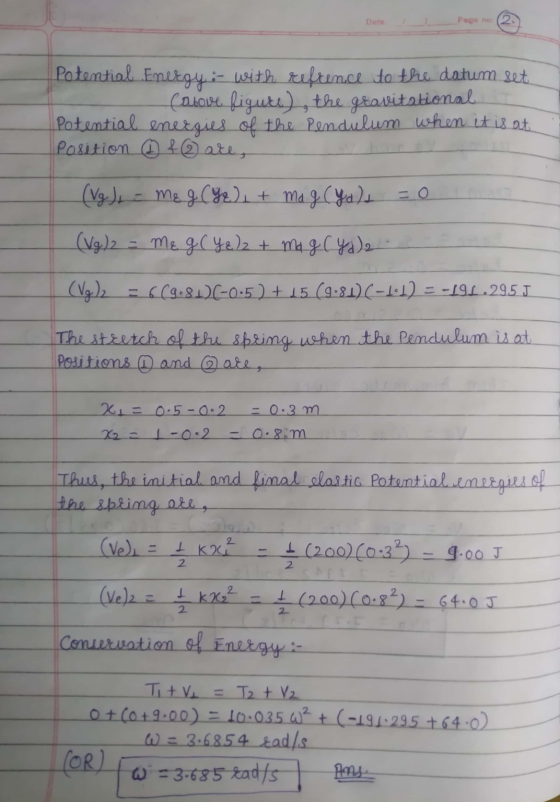 Date / / Page no: 2.
Potential Energy :- with refrence to the datum set
(above figure), the gravitational
Potential energies of the Pendulum when it is at
Position ① & ② are,
(Vg)₁ = mr g(yr)₁ + md g(yd)₁ = 0
(Vg)2 = mr g(yr)2 + md g(yd)2
(Vg)2 = 6(9.81)(-0.5) + 15(9.81)(-1.1) = -191.295 J
The stretch of the spring when the Pendulum is at
Positions ① and ② are,
x₁ = 0.5-0.2 = 0.3 m
x2 = 1-0.2 = 0.8 m
Thus, the initial and final elastic Potential energies of
the spring are,
(Ve)₁ = 1/2 kx₁² = 1/2 (200)(0.3²) = 9.00 J
(Ve)2 = 1/2 kx2² = 1/2 (200)(0.8²) = 64.0 J
Conservation of Energy :-
T₁ + V₁ = T2 + V2
0+(0+9.00) = 10.035 ω² + (-191.295 + 64.0)
ω = 3.6854 rad/s
(OR) ω = 3.685 rad/s Ans.